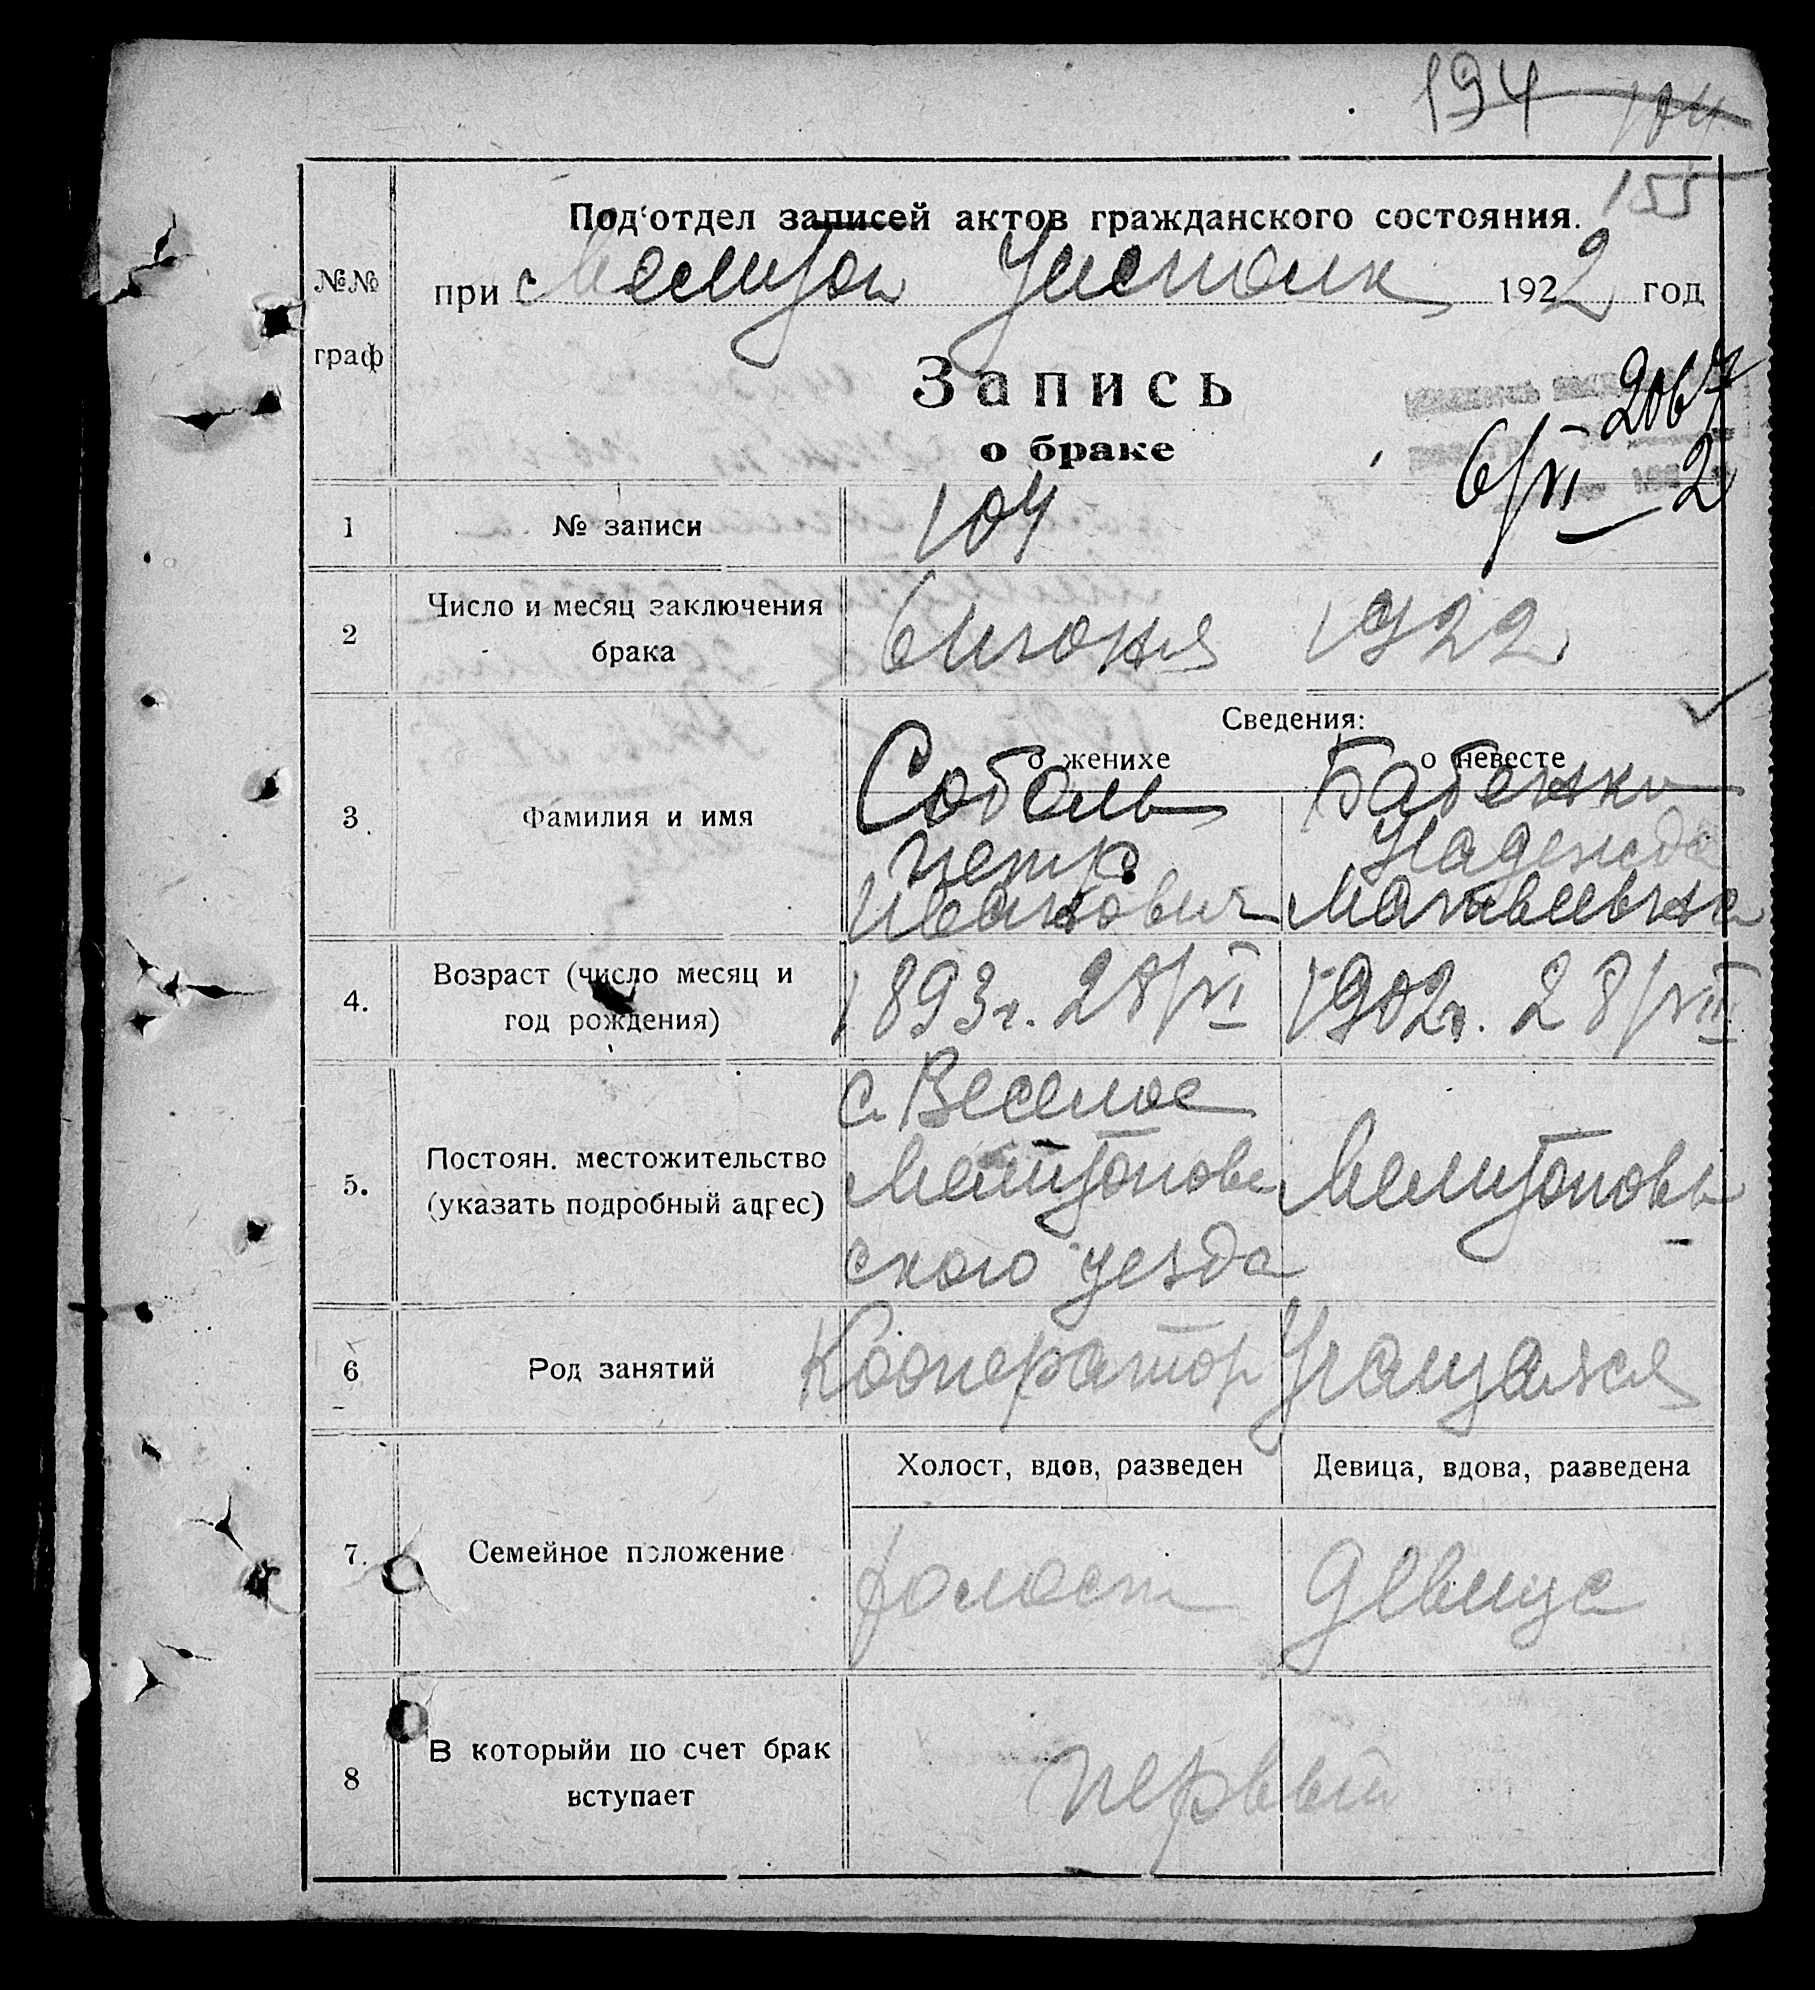 194 104
155
Под'отдел записей актов гражданского состояния.
№№ граф
при Мелитоп Уисполк 1922 год
Запись
о браке
2067
6/VI 2
1 № записи 104
2 Число и месяц заключения брака 6 июня 1922
Сведения:
о женихе о невесте
3 Фамилия и имя Соболь Бабенко
Петр Надежда
Иванович Матвеевна
4. Возраст (число месяц и год рождения) 1893г. 28/VI 1902г. 28/VII
с. Веселое
5. Постоян. местожительство (указать подробный адрес) Мелитопов Мелитополь
ского уезда
6 Род занятий Кооператор Учащаяся
Холост, вдов, разведен Девица, вдова, разведена
7. Семейное положение холост девица
8 В которыйи по счет брак вступает первый